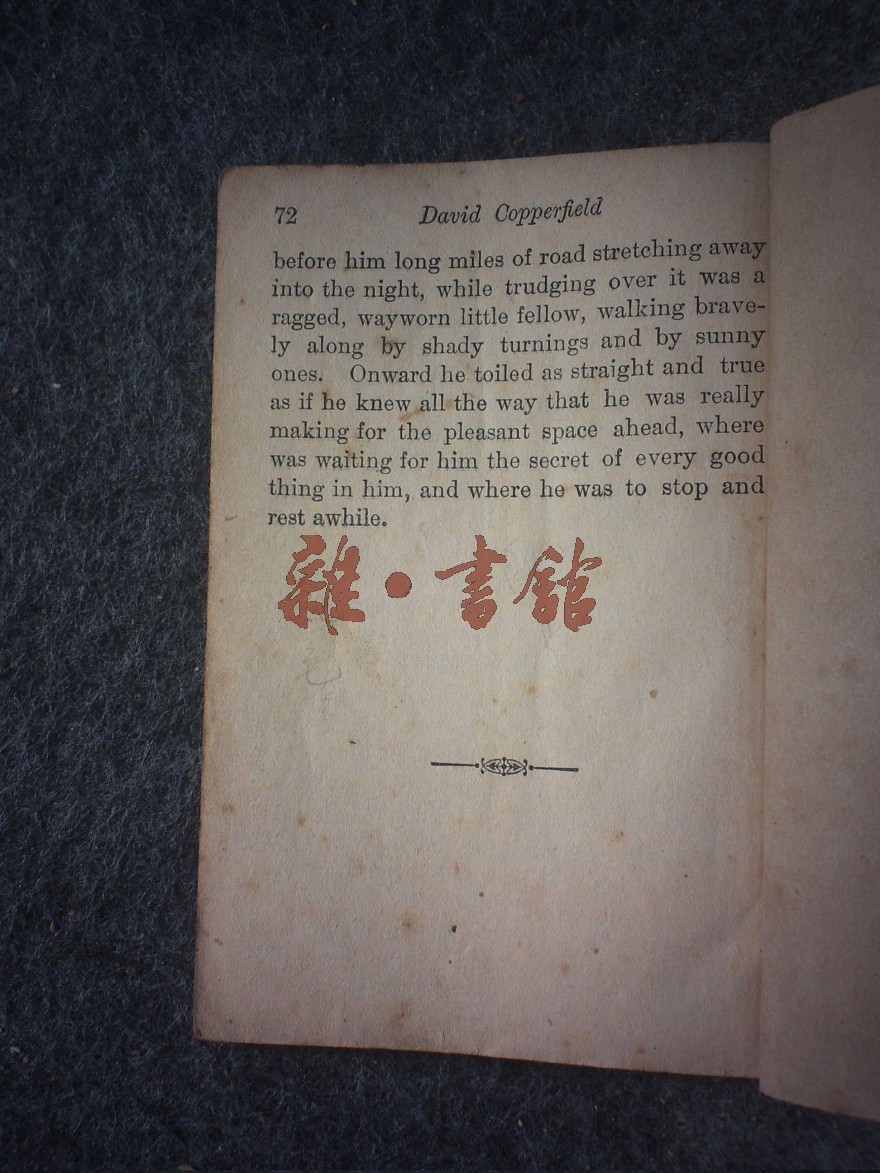 72 David Copperfield
before him long miles of road stretching away
into the night, while trudging over it was a
ragged, wayworn little fellow, walking brave-
ly along by shady turnings and by sunny
ones. Onward he toiled as straight and true
as if he knew all the way that he was really
making for the pleasant space ahead, where
was waiting for him the secret of every good
thing in him, and where he was to stop and
rest awhile.
雜·書館